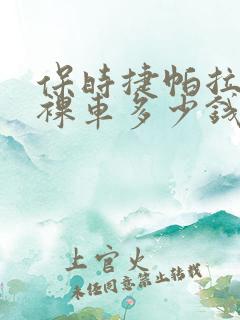 保時捷帕拉
裸車多少錢
上官火
未经同意禁止转载